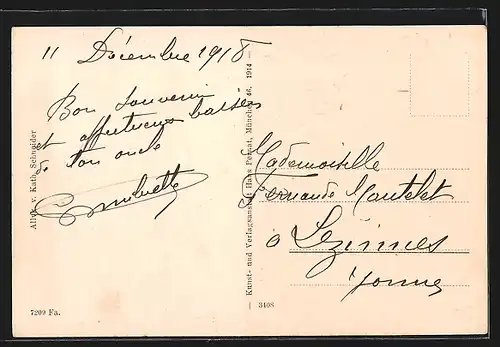 11 Décembre 1918
Bon souvenir
et affectueux baisers
de Ton oncle
Mademoiselle
Fernande Mautelet
à Lézinnes
Yonne
Alleinv. v. Kath. Schneider
Kunst- und Verlagsanstalt Hans Pernat, München 46. 1914
7209 Fa.
3408